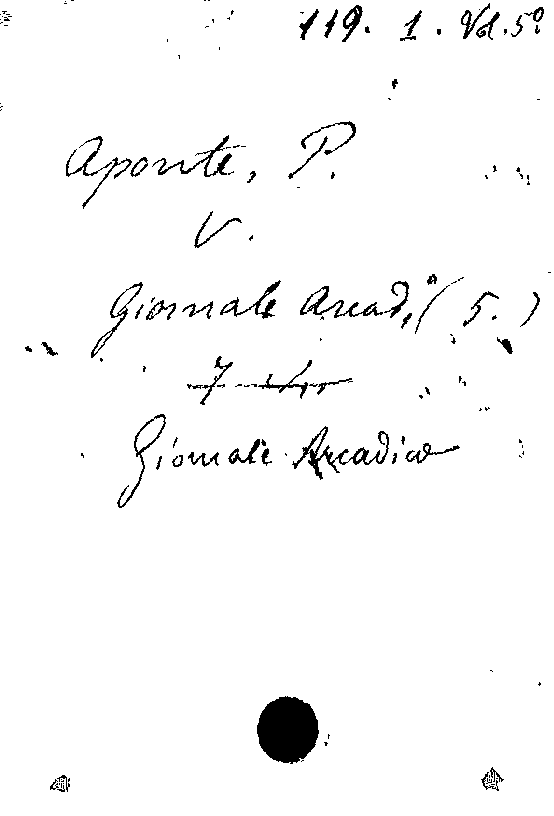 119. 1. Vol. 5º
Aponte, P.
V.
Giornale Arcad.º (5.)
7
Giornale Arcadico